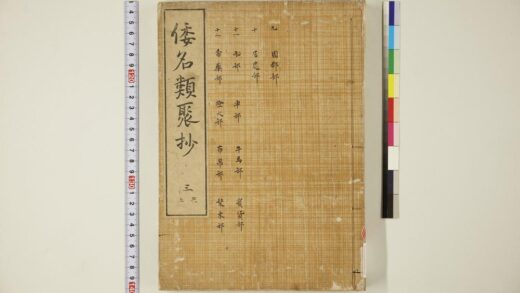 倭名類聚抄 三
九 國郡部
十 居処部
十一 船部 車部 牛馬部 寳貨部
十二 香藥部 燈火部 布帛部